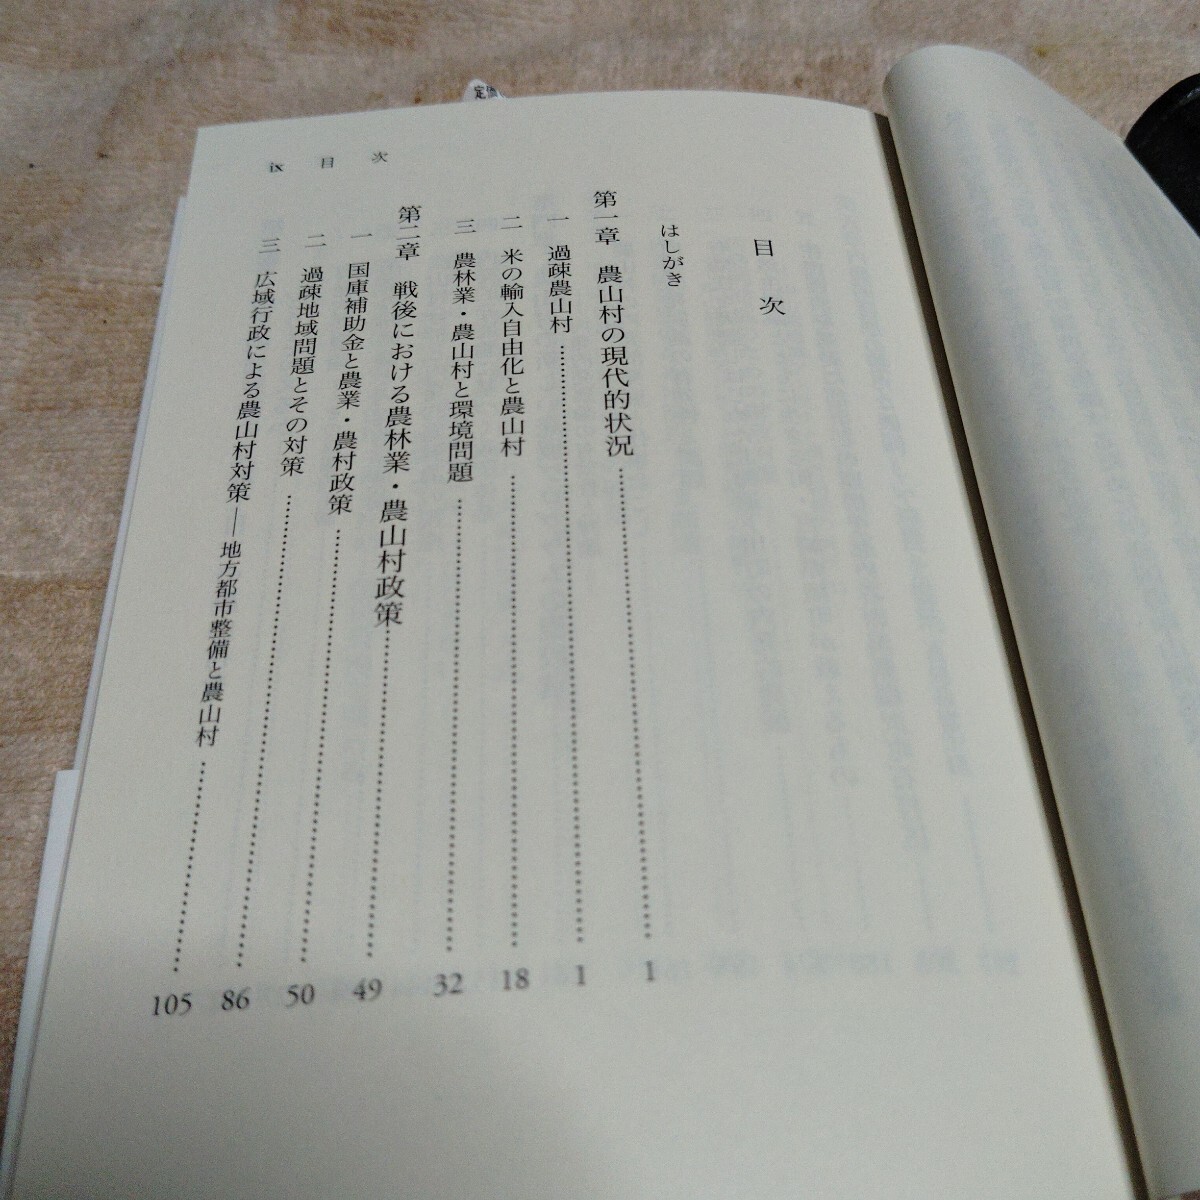 定価
ix 目 次
目 次
はしがき
第一章 農山村の現代的状況 1
一 過疎農山村 1
二 米の輸入自由化と農山村 18
三 農林業・農山村と環境問題 32
第二章 戦後における農林業・農山村政策 49
一 国庫補助金と農業・農村政策 50
二 過疎地域問題とその対策 86
三 広域行政による農山村対策―地方都市整備と農山村 105